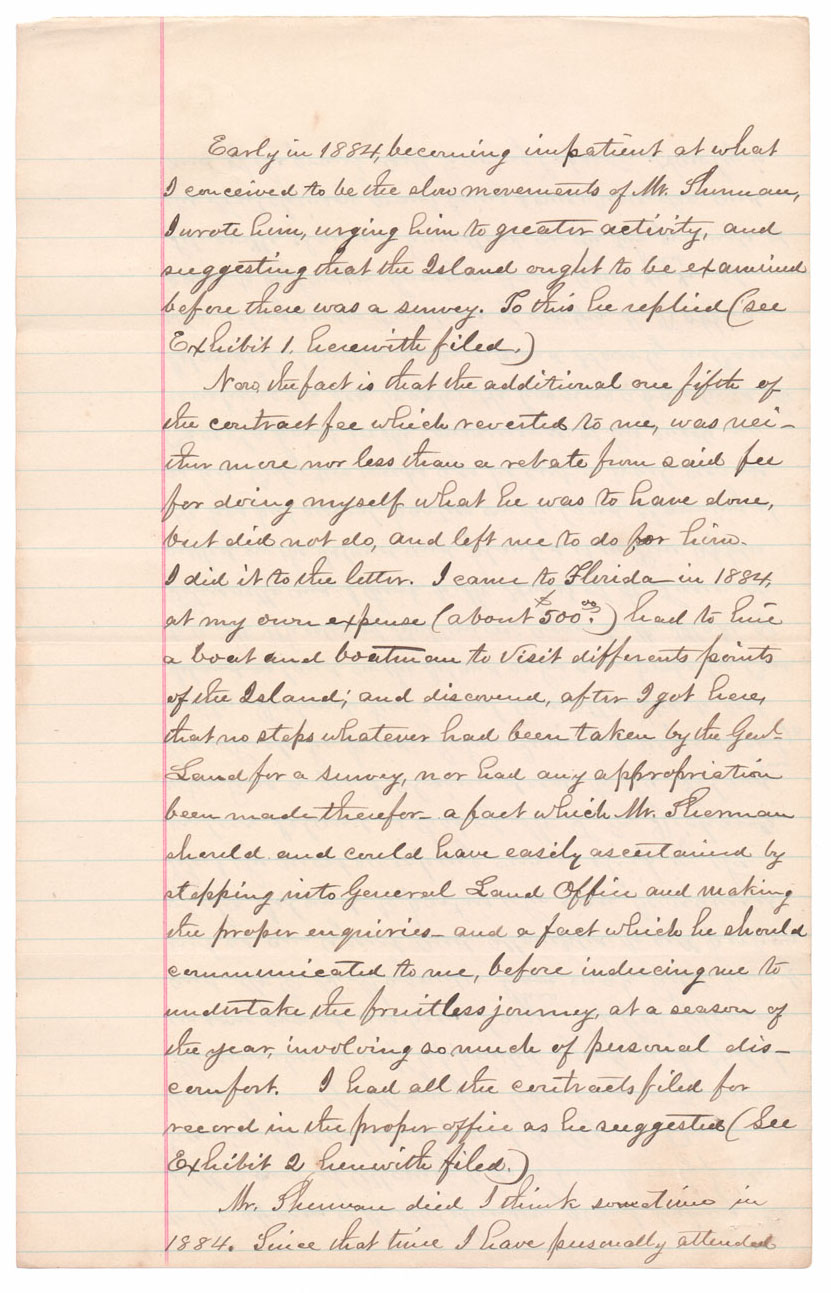 Early in 1884, becoming impatient at what
I conceived to be the slow movements of Mr. Sherman,
I wrote him, urging him to greater activity, and
suggesting that the Island ought to be examined
before there was a survey. To this he replied (see
Exhibit 1. herewith filed.)
Now, the fact is that the additional one fifth of
the contract fee which reverted to me, was nei-
ther more nor less than a rebate from said fee
for doing myself what he was to have done,
but did not do, and left me to do for him.
I did it to the letter. I came to Florida in 1884,
at my own expense (about $500.00) had to hire
a boat and boatman to visit differents points
of the Island; and discovered, after I got here,
that no steps whatever had been taken by the Genl.
Land for a survey, nor had any appropriation
been made therefor - a fact which Mr. Sherman
should and could have easily ascertained by
stepping into General Land Office and making
the proper enquiries - and a fact which he should
communicated to me, before inducing me to
undertake the fruitless journey, at a season of
the year, involving so much of personal dis-
comfort. I had all the contracts filed for
record in the proper office as he suggested (See
Exhibit 2 herewith filed.)
Mr. Sherman died I think sometime in
1884. Since that time I have personally attended